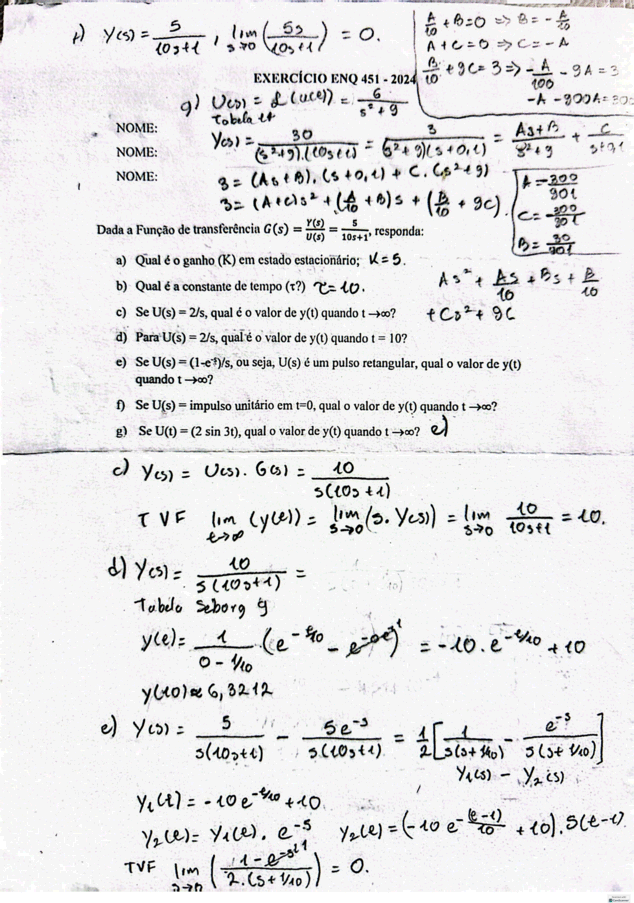 f) Y(s) = 5/(10s+1), lim s→0 (5s/(10s+1)) = 0.
A/10 + B = 0 => B = -A/10
A + C = 0 => C = -A
B/10 + 9C = 3 => -A/100 - 9A = 3
-A - 900A = 300
EXERCÍCIO ENQ 451 - 2024
g) U(s) = L(u(t)) = 6/(s²+9)
Tabela 14
NOME:
NOME:
NOME:
Y(s) = 30/((s²+9).(10s+1)) = 3/((s²+9)(s+0,1)) = (As+B)/(s²+9) + C/(s+0,1)
3 = (As+B).(s+0,1) + C.(s²+9)
3 = (A+C)s² + (A/10 + B)s + (B/10 + 9C).
A = -300/901
C = -300/901
B = 30/901
Dada a Função de transferência G(s) = Y(s)/U(s) = 5/(10s+1), responda:
a) Qual é o ganho (K) em estado estacionário; K = 5.
b) Qual é a constante de tempo (τ?) τ = 10.
As² + As/10 + Bs + B/10
+ Cs² + 9C
c) Se U(s) = 2/s, qual é o valor de y(t) quando t →∞?
d) Para U(s) = 2/s, qual é o valor de y(t) quando t = 10?
e) Se U(s) = (1-e⁻ˢ)/s, ou seja, U(s) é um pulso retangular, qual o valor de y(t)
quando t →∞?
f) Se U(s) = impulso unitário em t=0, qual o valor de y(t) quando t →∞?
g) Se U(t) = (2 sin 3t), qual o valor de y(t) quando t →∞?
c) Y(s) = U(s). G(s) = 10/(s(10s+1))
TVF lim t→∞ (y(t)) = lim s→0 (s. Y(s)) = lim s→0 10/(10s+1) = 10.
d) Y(s) = 10/(s(10s+1)) =
Tabela Seborg 9
y(t) = 1/(0 - 1/10) (e^(-t/10) - e^(-0t)) = -10. e^(-t/10) + 10
y(10) ≈ 6,3212
e) Y(s) = 5/(s(10s+1)) - 5e^(-s)/(s(10s+1)) = 1/2 [1/(s(s+1/10)) - e^(-s)/(s(s+1/10))]
Y₁(s) - Y₂(s)
Y₁(t) = -10e^(-t/10) + 10
Y₂(t) = Y₁(t). e^(-s) Y₂(t) = (-10 e^(-(t-1)/10) + 10). S(t-1)
TVF lim s→0 ((1 - e^(-s))/(2.(s+1/10))) = 0.